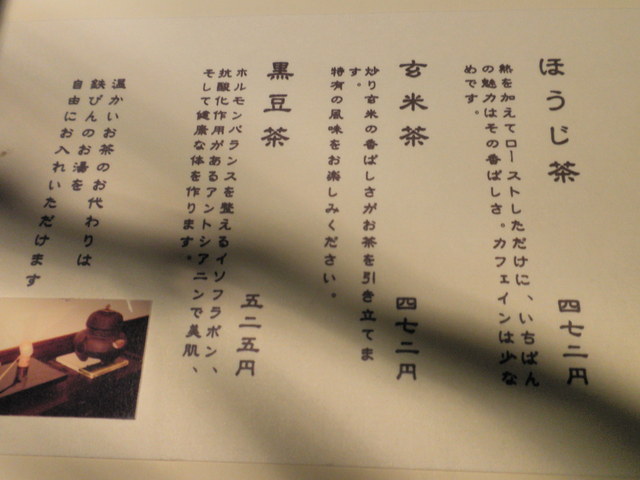 ほうじ茶
四七二円
熱を加えてローストしただけに、いちばん
の魅力はその香ばしさ。カフェインは少な
めです。
玄米茶
四七二円
炒り玄米の香ばしさがお茶を引き立てま
す。
特有の風味をお楽しみください。
黒豆茶
五二五円
ホルモンバランスを整えるイソフラボン、
抗酸化作用があるアントシアニンで美肌、
そして健康な体を作ります。
温かいお茶のお代わりは
鉄びんのお湯を
自由にお入れいただけます